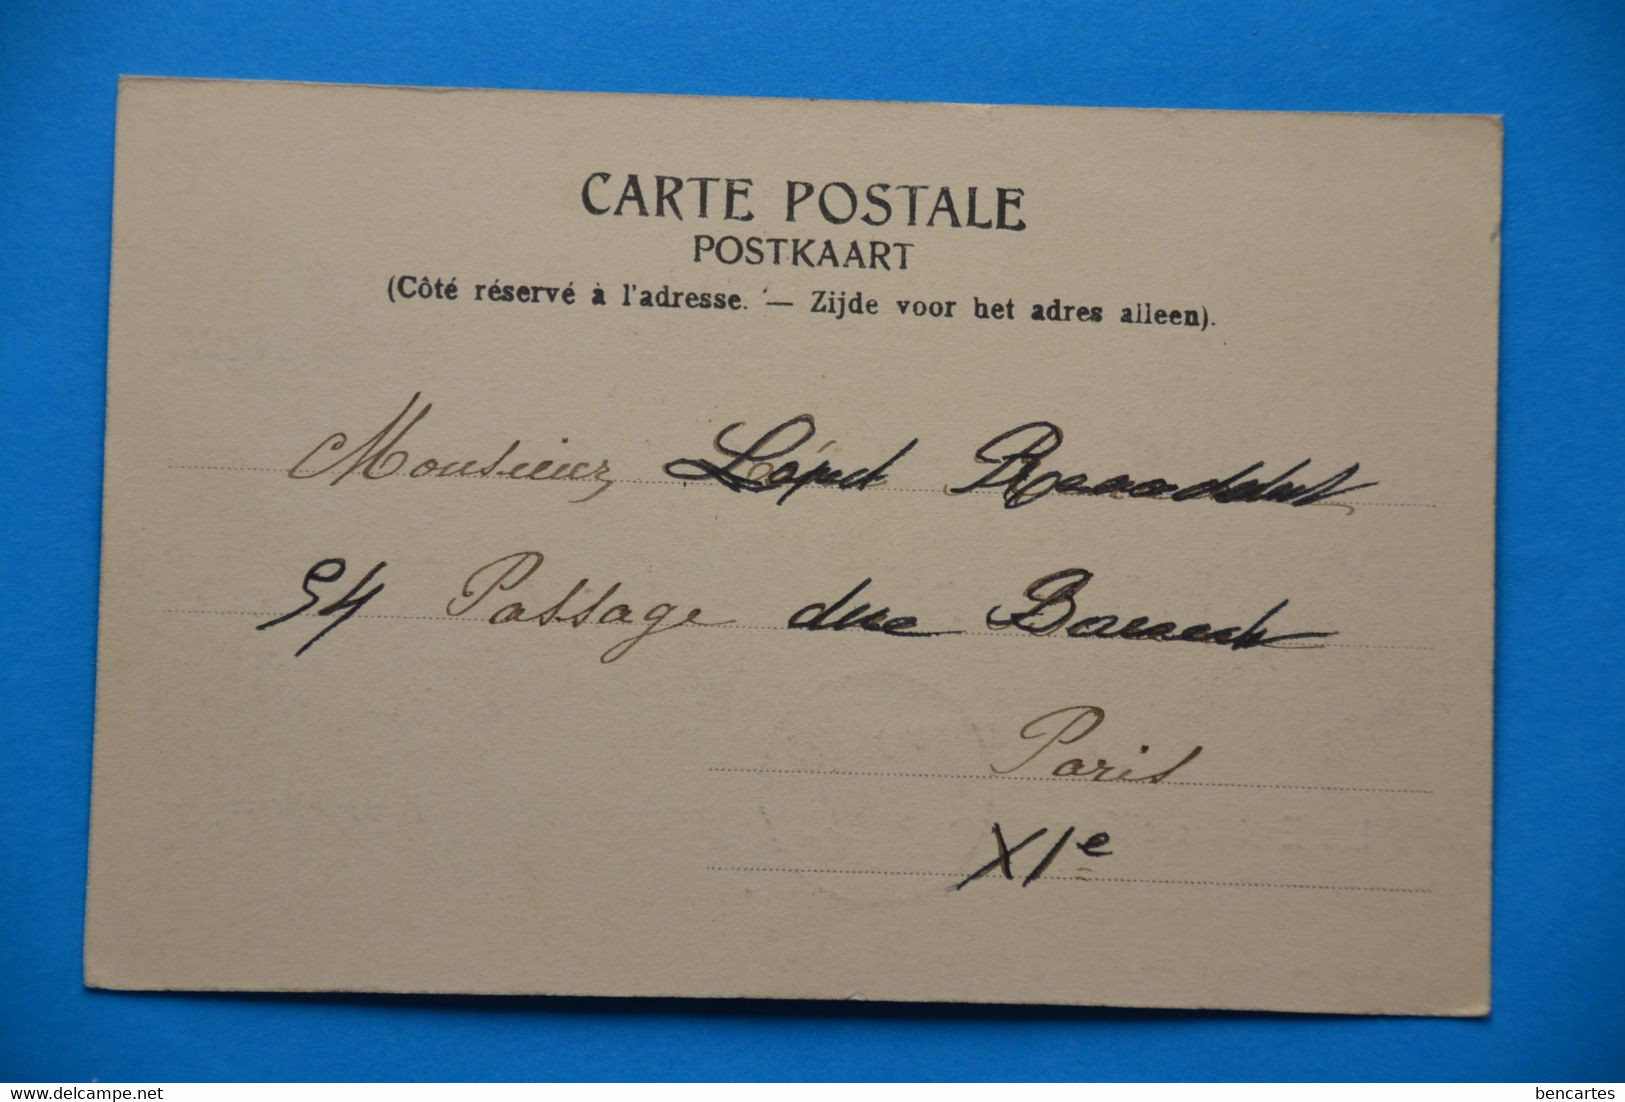 CARTE POSTALE
POSTKAART
(Côté réservé à l'adresse. — Zijde voor het adres alleen).
Monsieur
54 Passage du
Paris
XIe
delcampe.net
bencartes